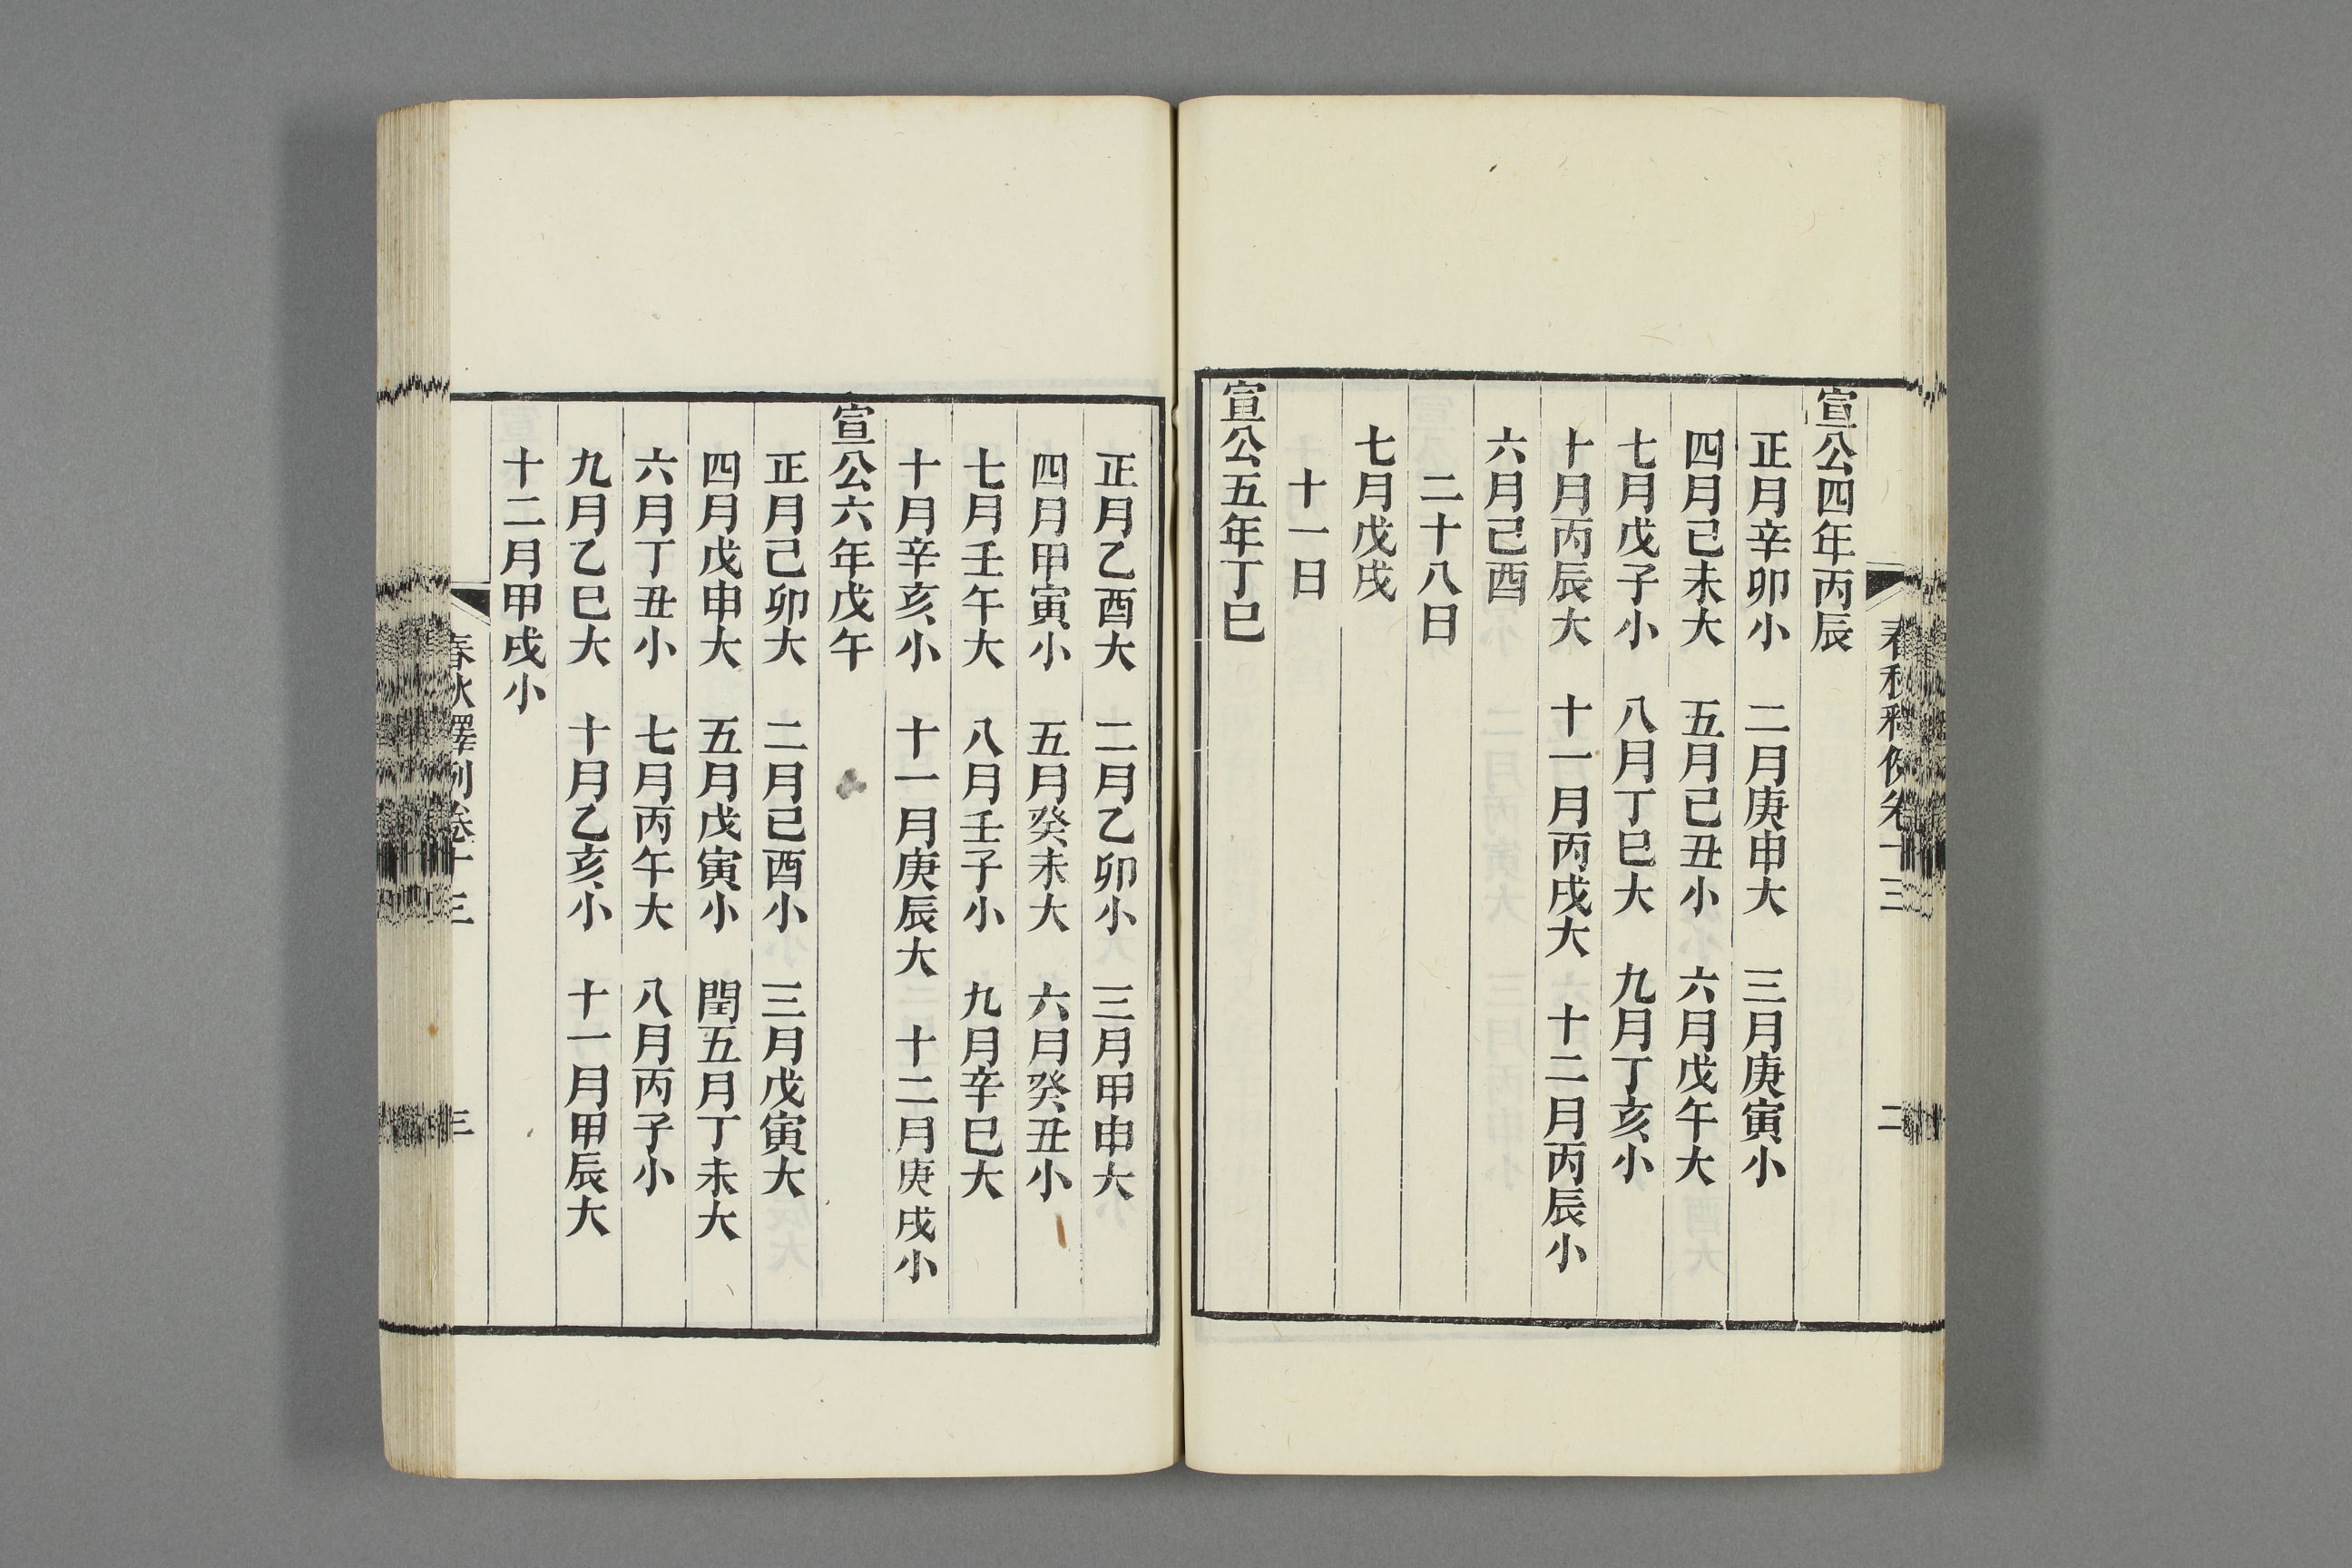 春秋釋例卷十三
二
宣公四年丙辰
正月辛卯小　二月庚申大　三月庚寅小
四月己未大　五月己丑小　六月戊午大
七月戊子小　八月丁巳大　九月丁亥小
十月丙辰大　十一月丙戌大　十二月丙辰小
六月己酉
二十八日
七月戊戌
十一日
宣公五年丁巳
正月乙酉大　二月乙卯小　三月甲申大
四月甲寅小　五月癸未大　六月癸丑小
七月壬午大　八月壬子小　九月辛巳大
十月辛亥小　十一月庚辰大　十二月庚戌小
宣公六年戊午
正月己卯大　二月己酉小　三月戊寅大
四月戊申大　五月戊寅小　閏五月丁未大
六月丁丑小　七月丙午大　八月丙子小
九月乙巳大　十月乙亥小　十一月甲辰大
十二月甲戌小
春秋釋例卷十三
三